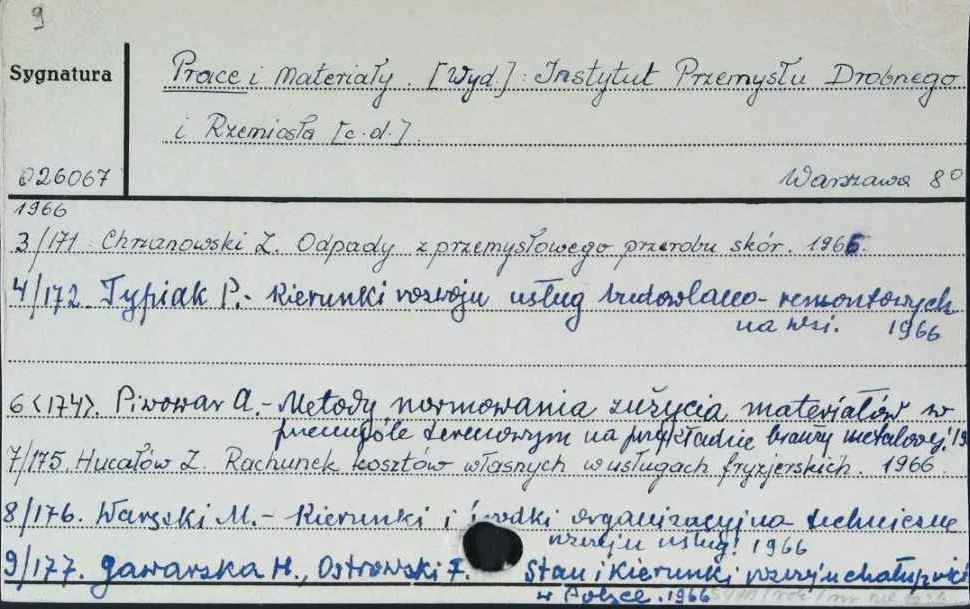 9
Sygnatura
Prace i Materiały. [Wyd.]: Instytut Przemysłu Drobnego
i Rzemiosła [c.d.].
026067
Warszawa 8°
1966
3/171. Chrzanowski Z. Odpady z przemysłowego przerobu skór. 1966
4/172. Typiak P.- Kierunki rozwoju usług budowlano-remontowych
na wsi. 1966
6<174>. Piwowar A.- Metody normowania zużycia materiałów w
przemyśle terenowym na przykładzie branży metalowej. 19
7/175. Hucałów Z. Rachunek kosztów własnych w usługach fryzjerskich. 1966.
8/176. Warski M.- Kierunki i środki organizacyjno techniczne
rozwoju usług. 1966
9/177. Gawarska H., Ostrowski F. Stan i kierunki rozwoju chałupnict
w Polsce. 1966